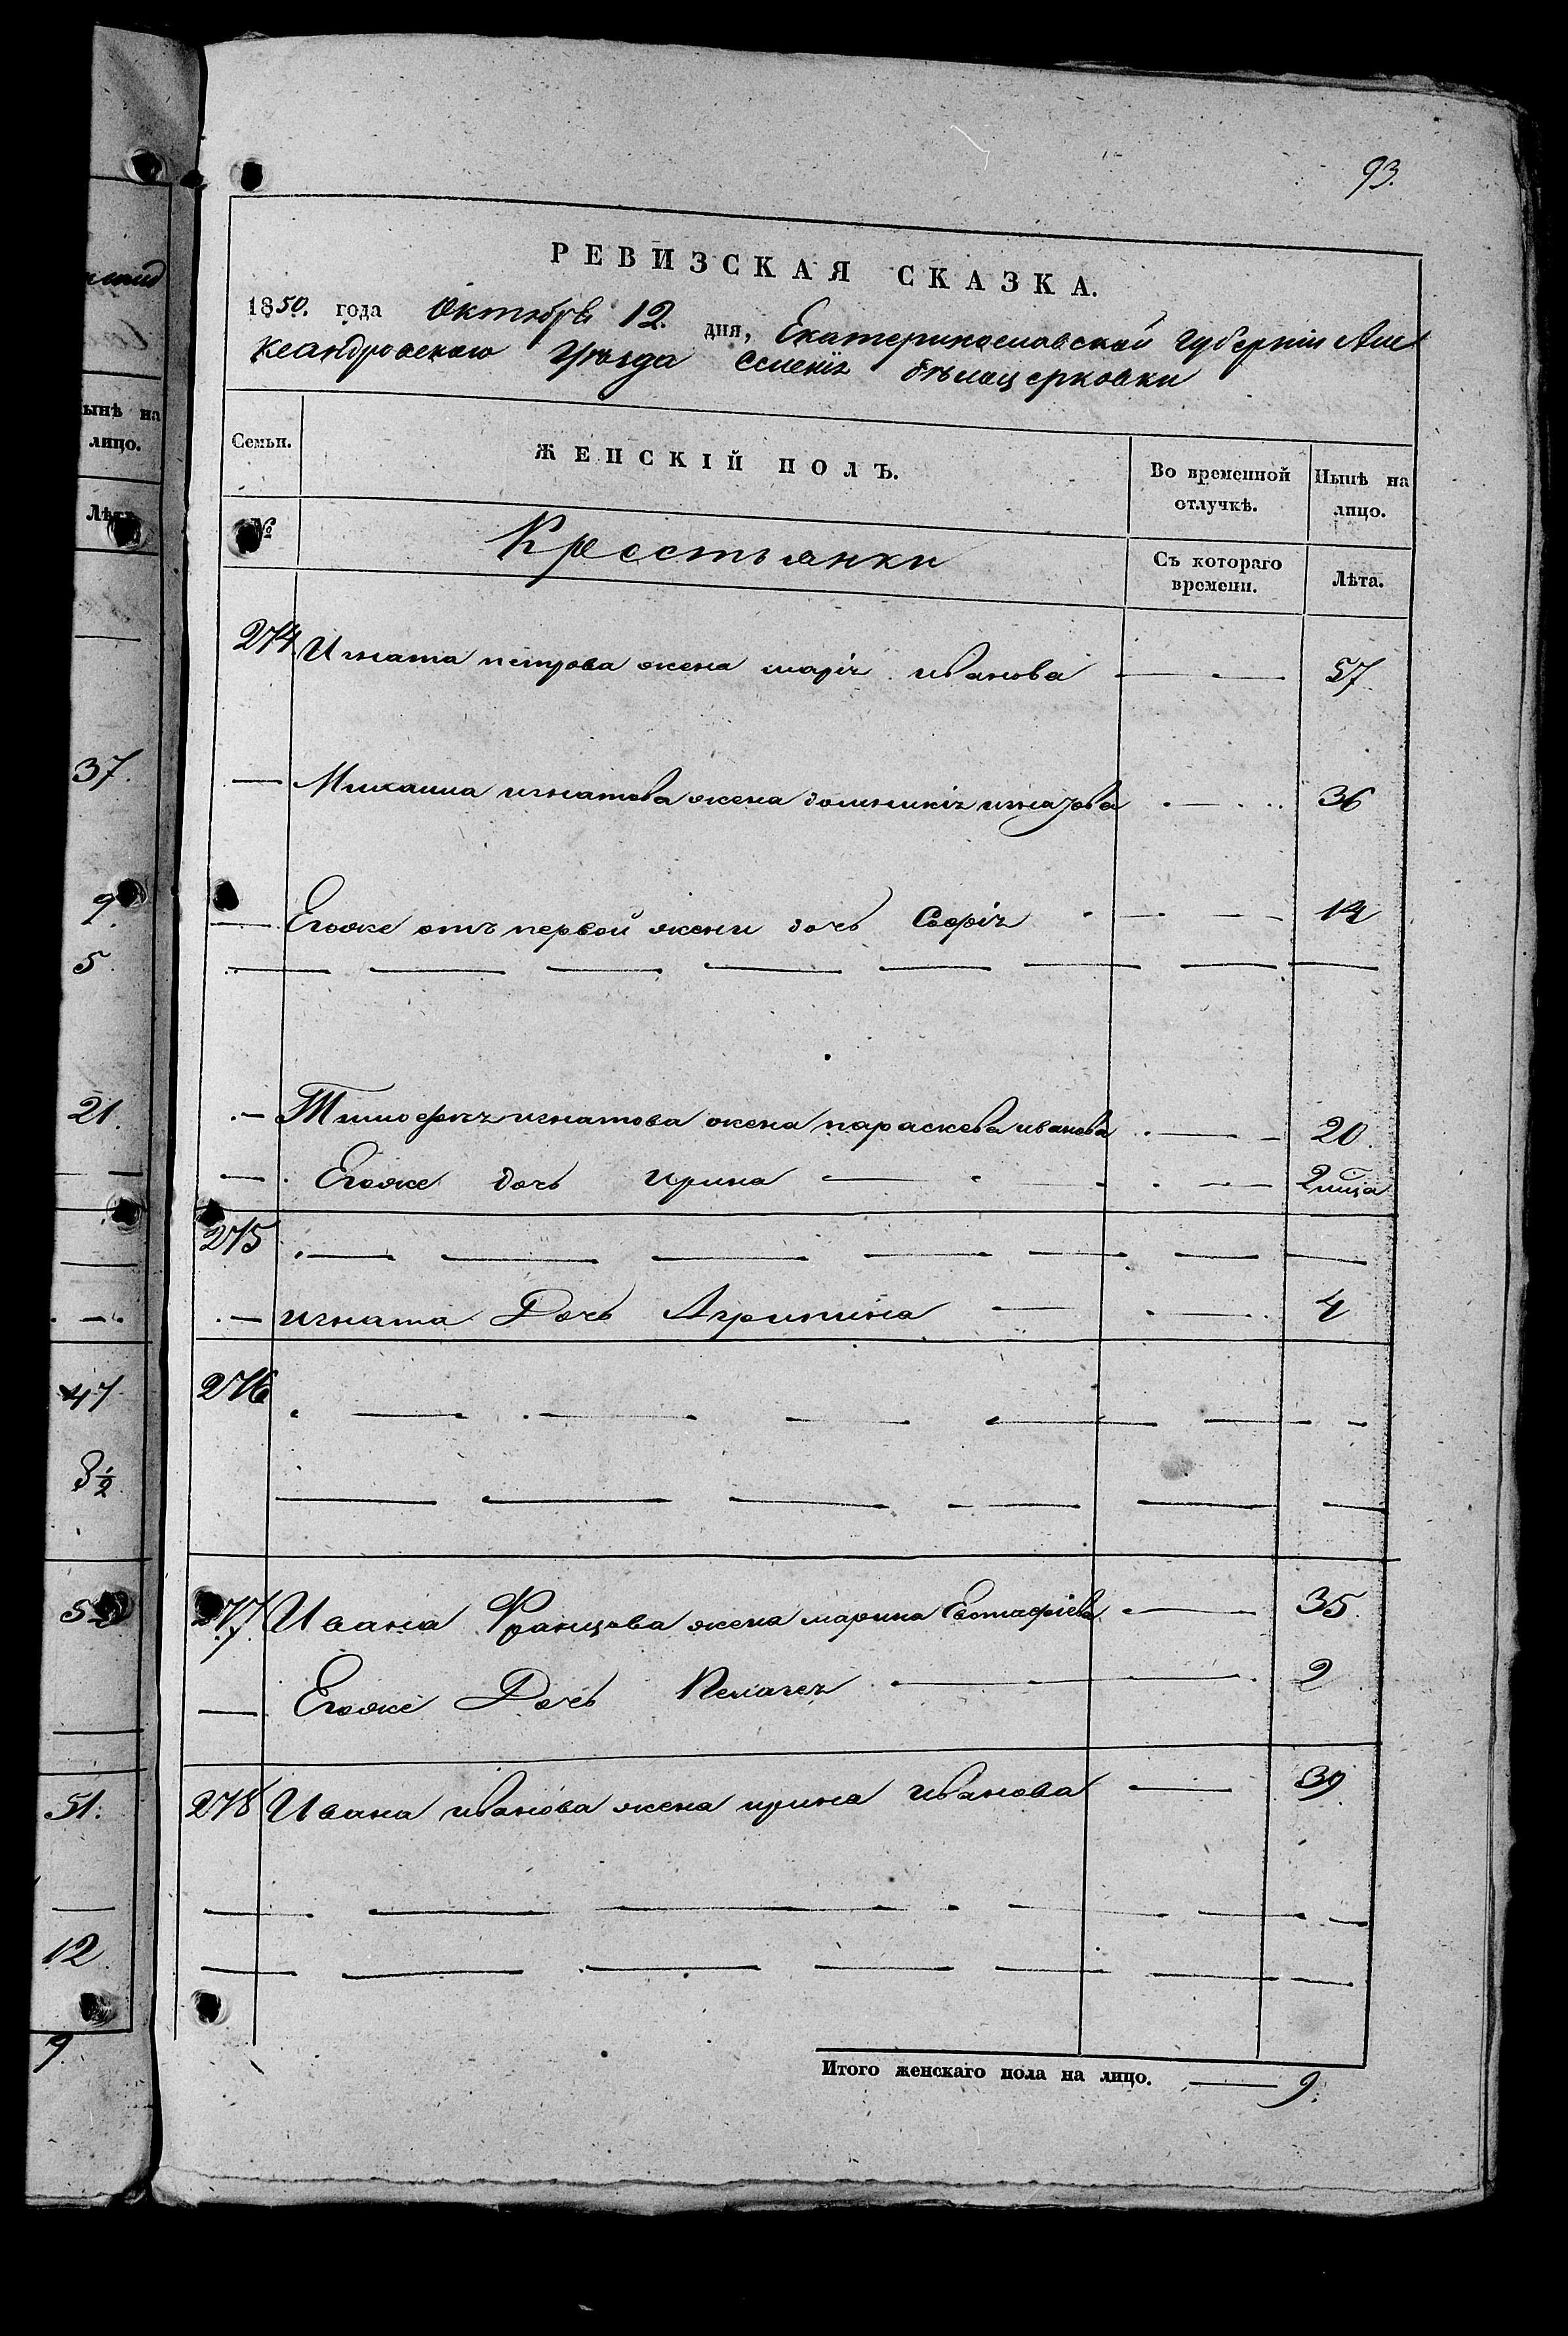 93.
РЕВИЗСКАЯ СКАЗКА.
1850. года Октября 12. дня, Екатеринославской губерніи Але
ксандровскаго уѣзда Селенія бѣлацерковки
ынѣ на
лицо.
Семьи. ЖЕНСКІЙ ПОЛЪ. Во временной отлучкѣ. Нынѣ на лицо.
№ Крестьянки Съ котораго времени. Лѣта.
274 Игната петрова жена марія иванова — 57
37. — Михаила игнатова жена домникія 36
9. — Егоже отъ первой жени дочь Софія — 14
5.
21. — Тимофея игнатова жена параскева иванова — 20.
— Егоже дочь ирина — 2 мца
275
— игната Дочь Агрипина — 4
47 276
3½
277. Ивана Францова жена марина Евстафіева — 35.
— Егоже Дочь Пелагея — 2
51. 278 Ивана иванова жена ирина иванова — 39.
12.
9.
Итого женскаго пола на лицо. — 9.